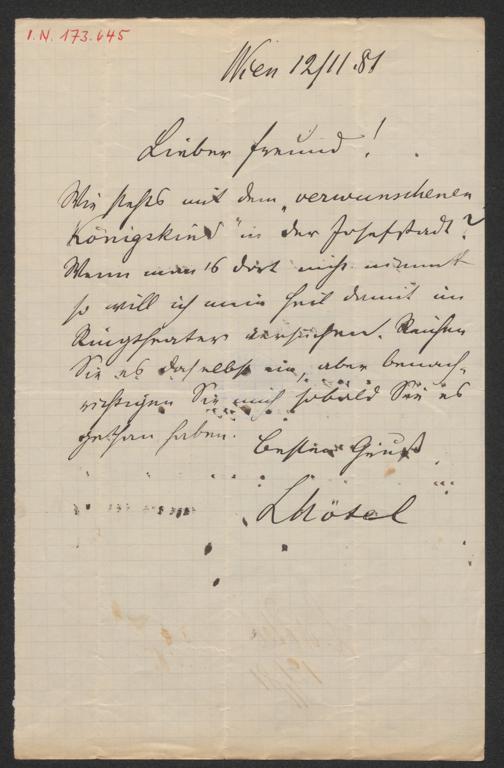 I.N. 173.645
Wien 12/11.81
Lieber Freund!
Wie stehts mit dem „verwunschenen
Königskind" in der Josefstadt?
Wenn man's dort nicht nimmt
so will ich mein Heil damit im
Ringtheater versuchen. Reichen
Sie es daselbst ein, aber benach-
richtigen Sie mich sobald Sie es
gethan haben. Besten Gruß